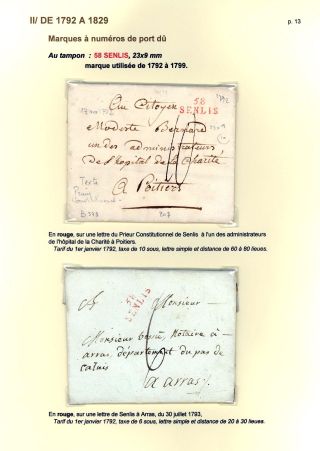 II/ DE 1792 A 1829
p. 13
Marques à numéros de port dû
Au tampon : 58 SENLIS, 23x9 mm
marque utilisée de 1792 à 1799.
58
SENLIS
Citoyen
Modeste Bernard
un des administrateurs
De l'hopital de la Charité
A Poitiers
10
Texte
En rouge, sur une lettre du Prieur Constitutionnel de Senlis à l'un des administrateurs
de l'hôpital de la Charité à Poitiers.
Tarif du 1er janvier 1792, taxe de 10 sous, lettre simple et distance de 60 à 80 lieues.
58
SENLIS
A Monsieur
Monsieur Notaire à
arras, département du pas de
calais
a arras
6
En rouge, sur une lettre de Senlis à Arras, du 30 juillet 1793,
Tarif du 1er janvier 1792, taxe de 6 sous, lettre simple et distance de 20 à 30 lieues.